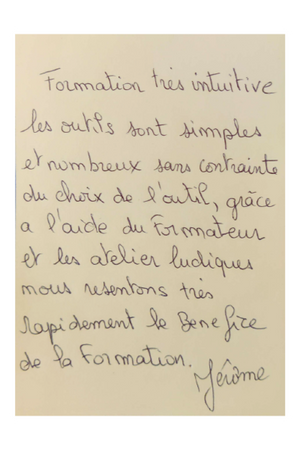 Formation très intuitive
les outils sont simples
et nombreux sans contrainte
du choix de l'outil, grâce
a l'aide du Formateur
et les atelier ludiques
nous resentons très
rapidement le Benefice
de la Formation.
Jérôme